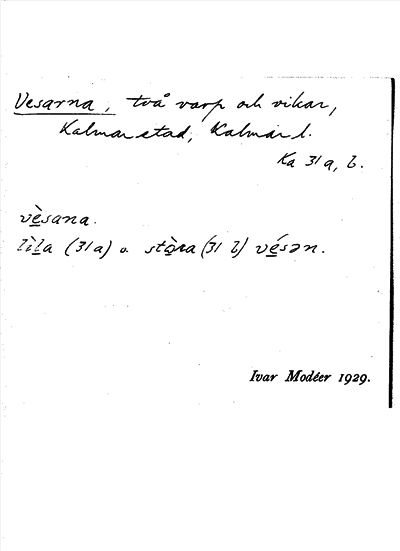 Vesarna, två varp och vikar,
Kalmar stad, Kalmar l.
Ka 31 a, b.
vè̱sana.
lìḻa (31 a) o. stò̱ra (31 b) vé̱sən.
Ivar Modéer 1929.